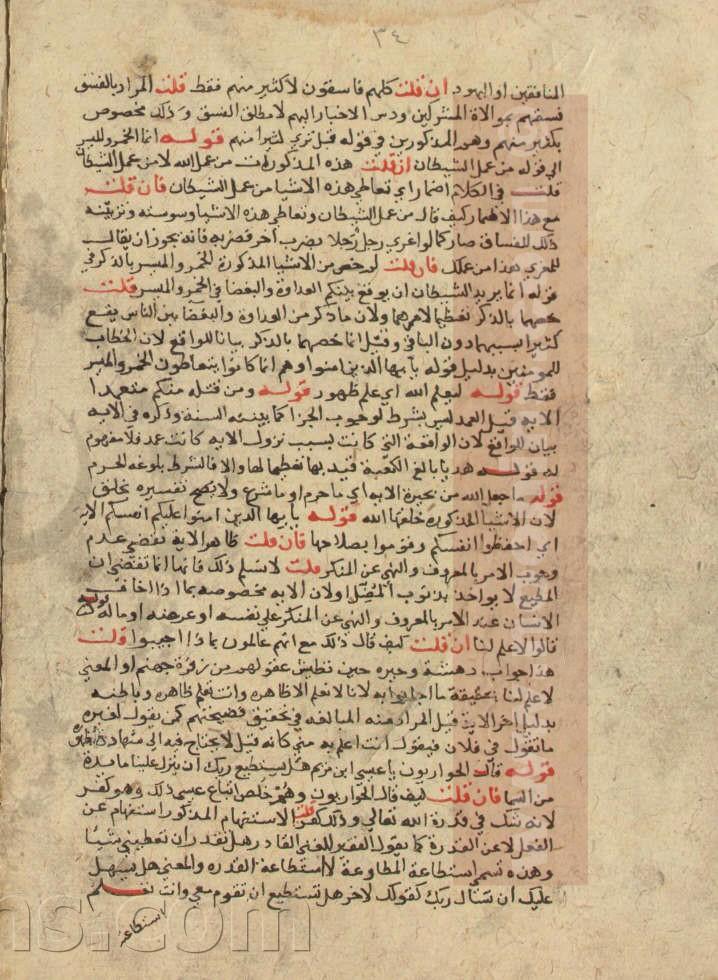 ٣٤
المنافقين او اليهود ان قلت كلهم فاسقون لا كثير منهم فقط قلت المراد بالفسق
فسقهم بموالاة المشركين ودس الاخبار اليهم لا مطلق الفسق وذلك مخصوص
بكثير منهم وهو المذكورين في قوله قبل ترى كثيرا منهم قوله انما الخمر والميسر
الى قوله من عمل الشيطان ان قلت هذه المذكورات من عمل الله لا من عمل الشيطان
قلت في الكلام اضمار اي تعاطي هذه الاشيا من عمل الشيطان فان قلت
مع هذا الاضمار كيف قال من عمل الشيطان وتعاطي هذه الاشيا وسوسته وتزيينه
ذلك للفساق صار كما لو اغرى رجل رجلا بضرب اخر فضربه فانه يجوز ان يقال
للمغري هذا من عملك فان قلت لم خص من الاشيا المذكورة الخمر والميسر بالذكر في
قوله انما يريد الشيطان ان يوقع بينكم العداوة والبغضا في الخمر والميسر قلت
خصهما بالذكر تعظيما لامرهما ولان ما ذكر من العداوة والبغضا بين الناس يقع
كثيرا بسببهما دون الباقي وقيل انما خصهما بالذكر بيانا للواقع لان الخطاب
للمومنين بدليل قوله يا يها الذين امنوا وهم انما كانوا يتعاطون الخمر والميسر
فقط قوله ليعلم الله اي علم ظهور قوله ومن قتله منكم متعمدا
الاية قيل العمد ليس بشرط لوجوب الجزا كما بينته السنة وذكره في الاية
بيان للواقع لان الواقعة التي كانت بسبب نزول الاية كانت عمد فلا مفهوم
له قوله هديا بالغ الكعبة قيد بها تعظيما لها والا فالشرط بلوغه الحرم
قوله ما جعل الله من بحيرة الاية اي ما حرم او ما شرع ولا يصح تفسيره بخلق
لان الاشيا المذكورة خلقها الله قوله يا يها الذين امنوا عليكم انفسكم الاية
اي احفظوا انفسكم وقوموا بصلاحها فان قلت ظاهر الاية تقتضي عدم
وجوب الامر بالمعروف والنهي عن المنكر قلت لا نسلم ذلك فانها انما تقتضي ان
المطيع لا يواخذ بذنوب المضل ولان الاية مخصوصة بما اذا خاف
الانسان عند الامر بالمعروف والنهي عن المنكر على نفسه او عرضه او ماله قوله
قالوا لا علم لنا ان قلت كيف قال ذلك مع انهم عالمون بماذا اجيبوا قلت
هذا جواب دهشة وحيرة حين تطيش عقولهم من زفرة جهنم او المعنى
لا علم لنا بحقيقة ما اجابوا به لانا لا نعلم الا ظاهره وانت تعلم ظاهره وباطنه
بدليل اخر الاية قيل المراد منه المبالغة في تحقيق فضيحتهم كمن يقول لغيره
ما تقول في فلان فيقول انت اعلم به مني كانه قيل لا يحتاج فيه الى شهادة لظهوره
قوله قال الحواريون يا عيسى ابن مريم هل يستطيع ربك ان ينزل علينا مايدة
من السما فان قلت كيف قال الحواريون وهم خلص اتباع عيسى ذلك وهو كفر
لانه شك في قدرة الله تعالى وذلك كفر قلت الاستفهام المذكور استفهام عن
الفعل لا عن القدرة كما يقول الفقير للغني القادر هل تقدر ان تعطيني شيئا
وهذه تسمى استطاعة المطاوعة لا استطاعة القدرة والمعنى هل يسهل
عليك ان تسال ربك كقولك لاخر هل تستطيع ان تقوم معي وانت تعلم
استطاعة
ns.com